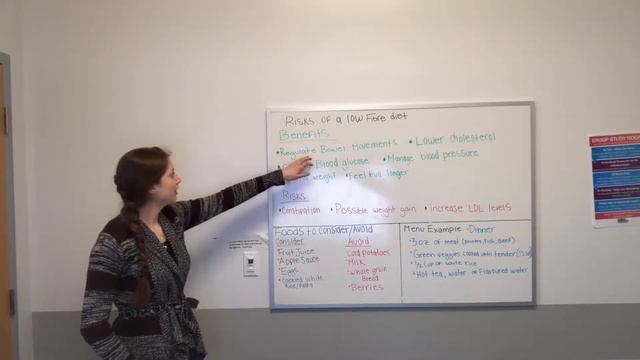 Risks of a low Fibre diet
Benefits
• Regulate Bowel Movements • Lower Cholesterol
Blood glucose • Manage blood pressure
weight • Feel full longer
Risks
• Constipation • Possible weight gain • Increase LDL levels
Foods to Consider/Avoid
Consider Avoid
Fruit Juice Cold potatoes
Apple Sauce Milk
Eggs Whole grain Bread
cooked white Rice/Pasta Berries
Menu Example - Dinner
3 oz of meat
Green veggies cooked until tender
1/2 cup of white rice
Hot tea, water or flavoured water
GROUP STUDY ROOM